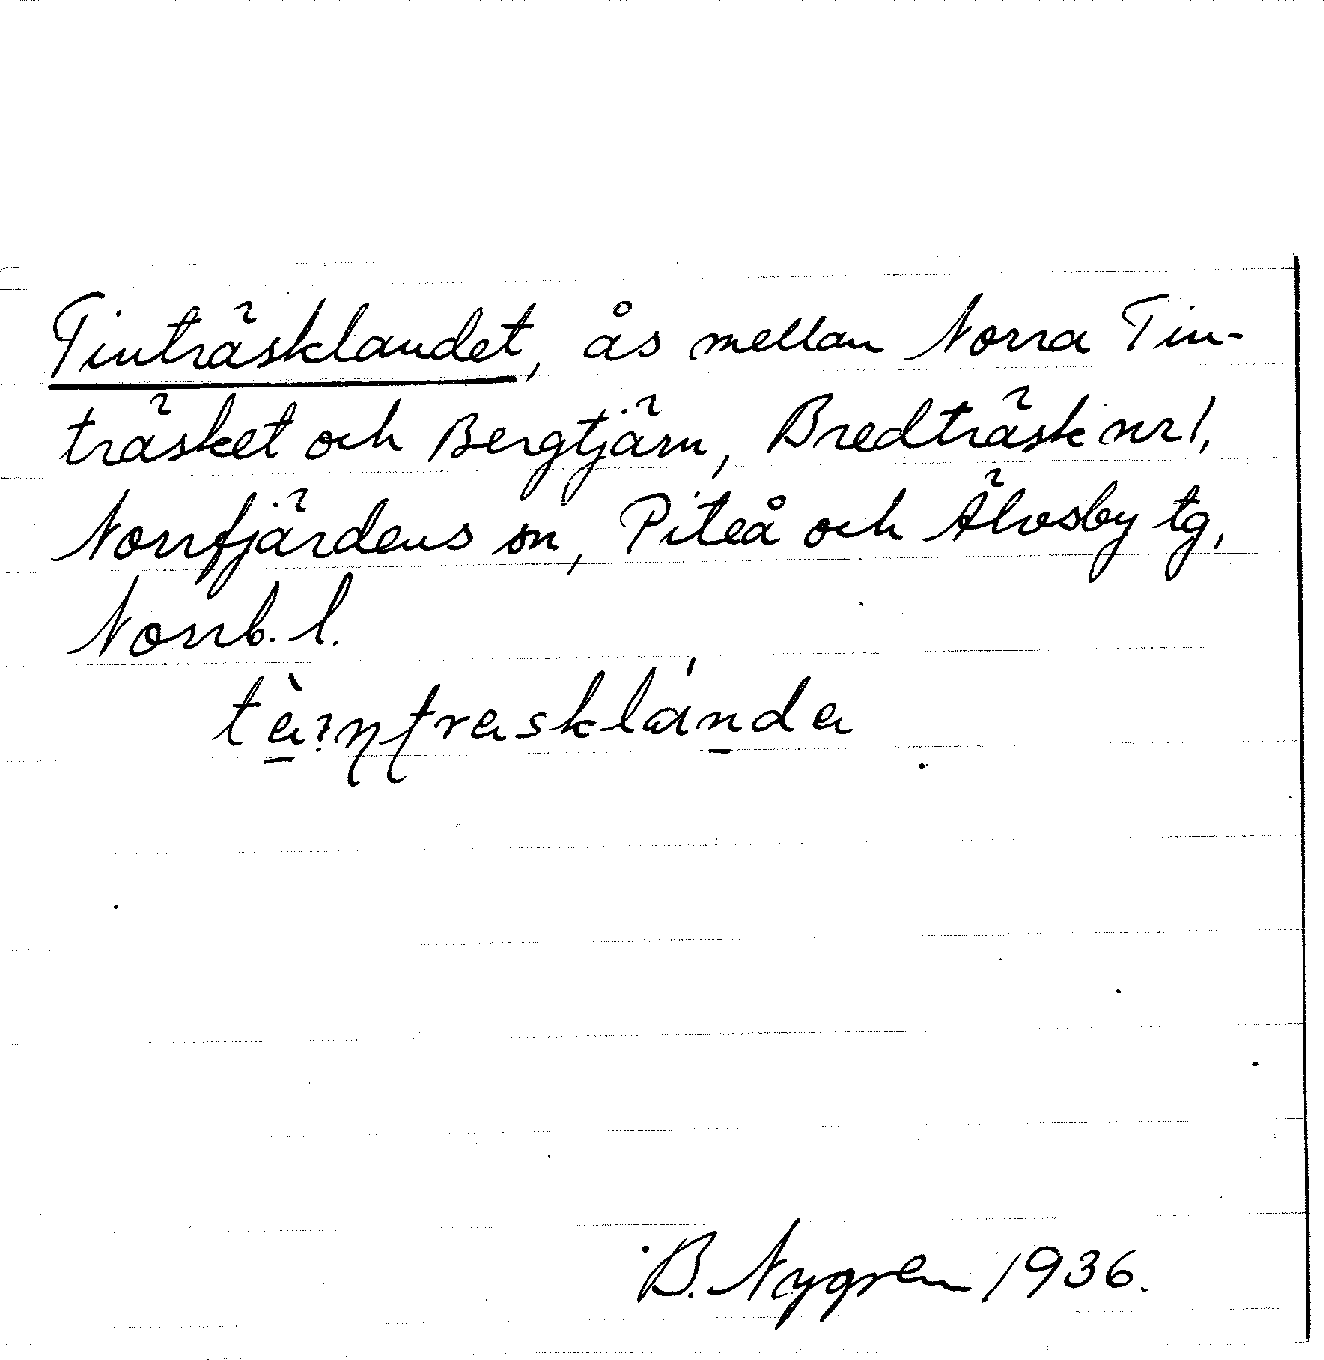 Tinträsklandet, ås mellan Norra Tin-
träsket och Bergtjärn, Bredträsk nr 1,
Norrfjärdens sn, Piteå och Älvsby tg,
Norrb. l.
B. Nygren 1936.